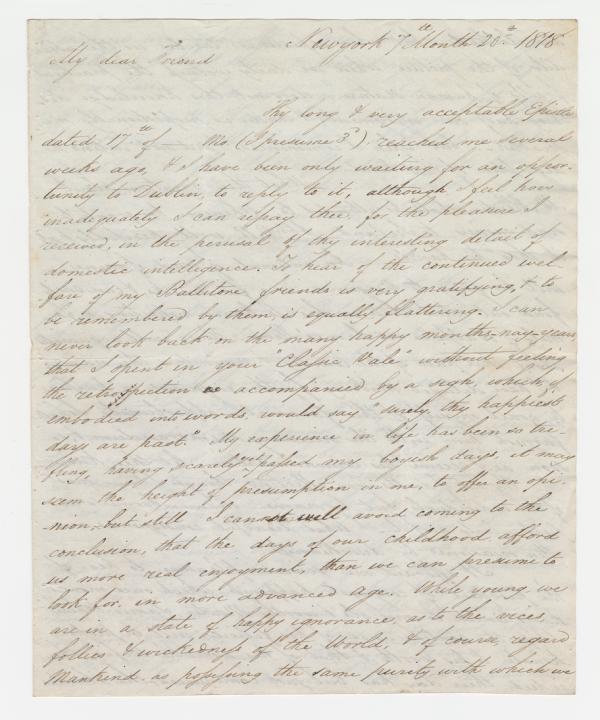 Newyork 7th Month 20th 1818
My dear Friend
Thy long & very acceptable Epistle
dated 17th of — Mo (I presume 3d) reached me several
weeks ago, & I have been only waiting for an oppor-
tunity to Dublin, to reply to it, although I feel how
inadequately I can repay thee, for the pleasure I
received, in the perusal of thy interesting detail of
domestic intelligence. To hear of the continued wel-
fare of my Ballitore friends is very gratifying, & to
be remembered by them, is equally flattering. I can
never look back on the many happy months-nay-years
that I spent in your "Classic Vale" without feeling
the retrospection accompanied by a sigh, which, if
embodied into words, would say "surely, thy happiest
days are past." My experience in life has been so tri-
fling, having scarcely yet passed my boyish days, it may
seem the height of presumption in me, to offer an opi-
-nion, but still I cannot well avoid coming to the
conclusion, that the days of our childhood afford
us more real enjoyment, than we can presume to
look for, in more advanced age. While young we
are in a state of happy ignorance, as to the vices,
follies & wickedness of the World, & of course, regard
Mankind as possessing the same purity with which we